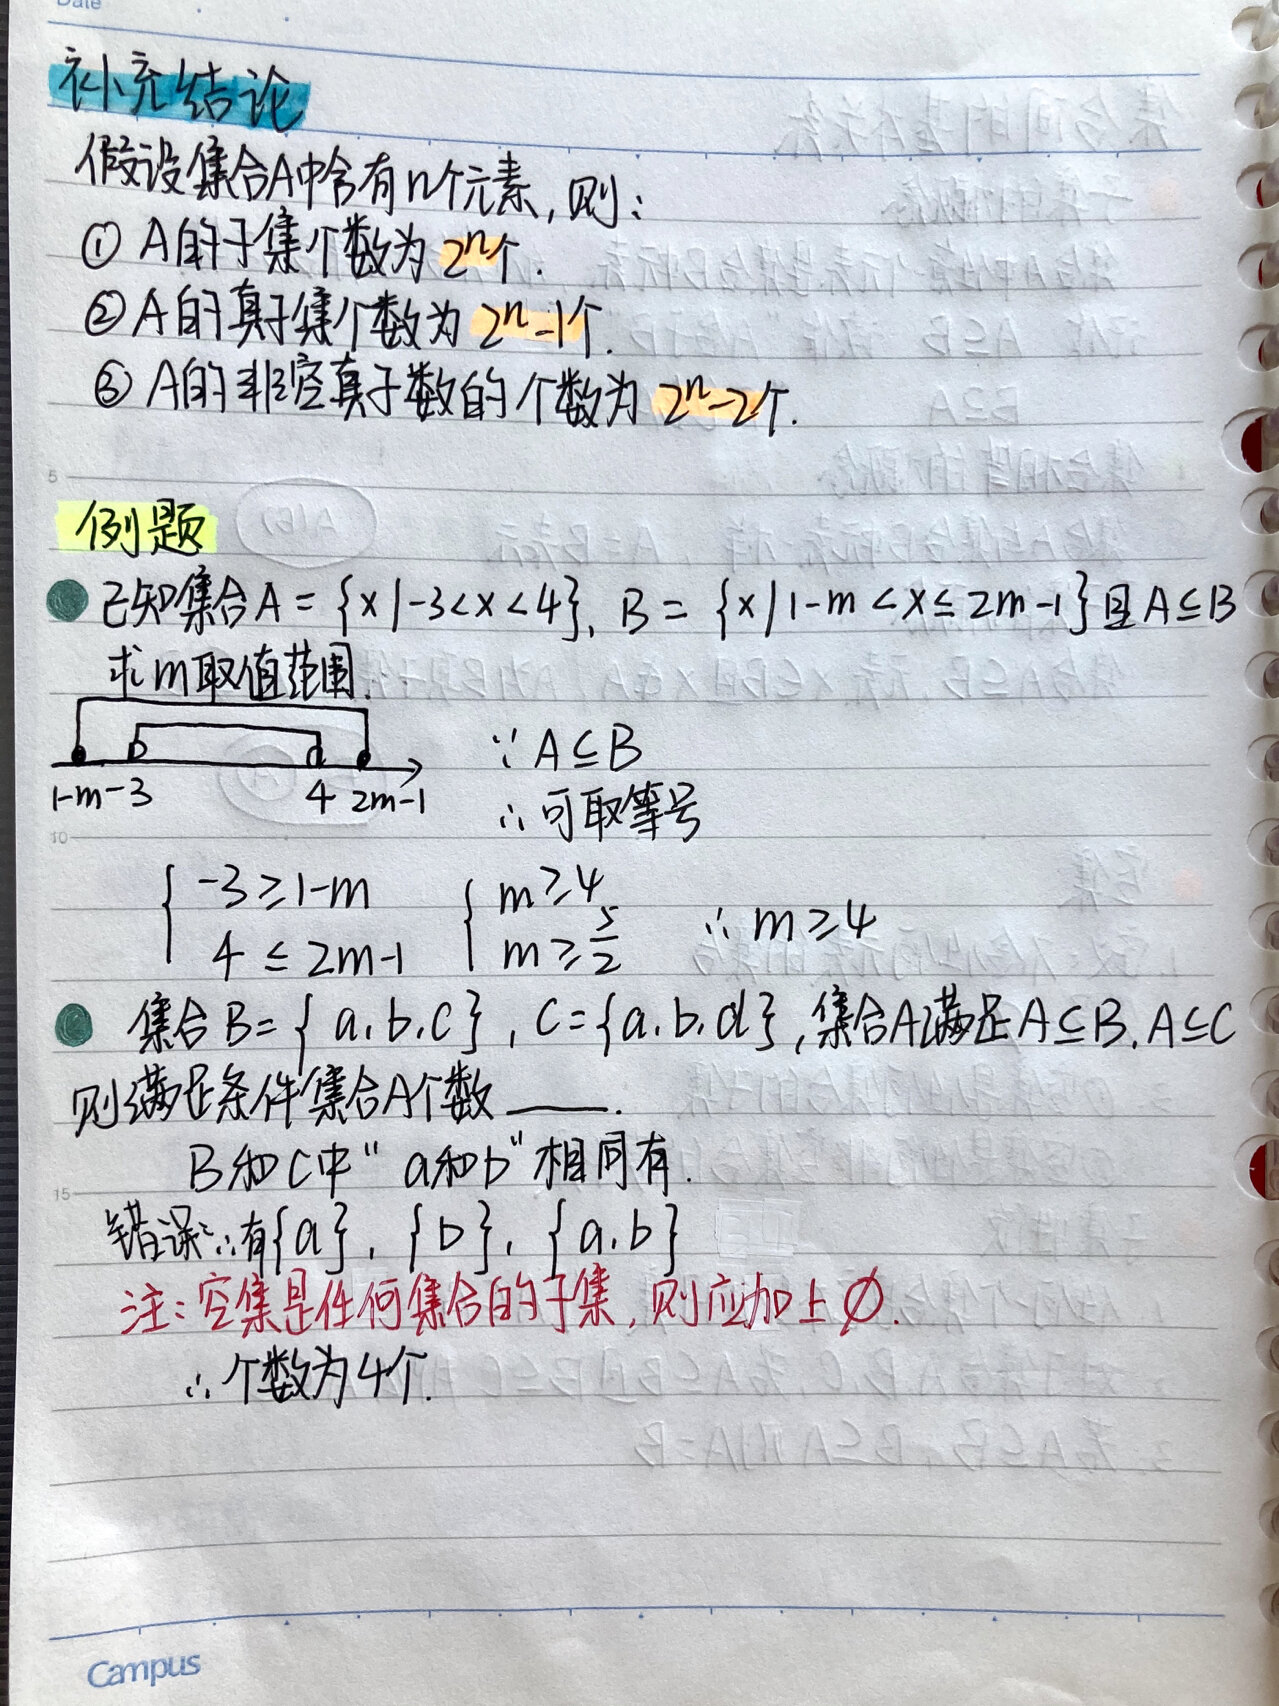 Date
补充结论
假设集合A中含有n个元素,则:
① A的子集个数为2ⁿ个.
② A的真子集个数为2ⁿ-1个.
③ A的非空真子数的个数为2ⁿ-2个.
5
例题
已知集合A={x|-3<x<4}, B={x|1-m<x≤2m-1}且A⊆B
求m取值范围.
1-m -3 4 2m-1
∵A⊆B
∴可取等号
10
{ -3≥1-m { m≥4
4≤2m-1 m≥5/2 ∴m≥4
集合B={a,b,c}, C={a,b,d},集合A满足A⊆B,A⊆C
则满足条件集合A个数____.
B和C中"a和b"相同有.
15
错误:∴有{a},{b},{a,b}
注:空集是任何集合的子集,则应加上∅.
∴个数为4个.
Campus